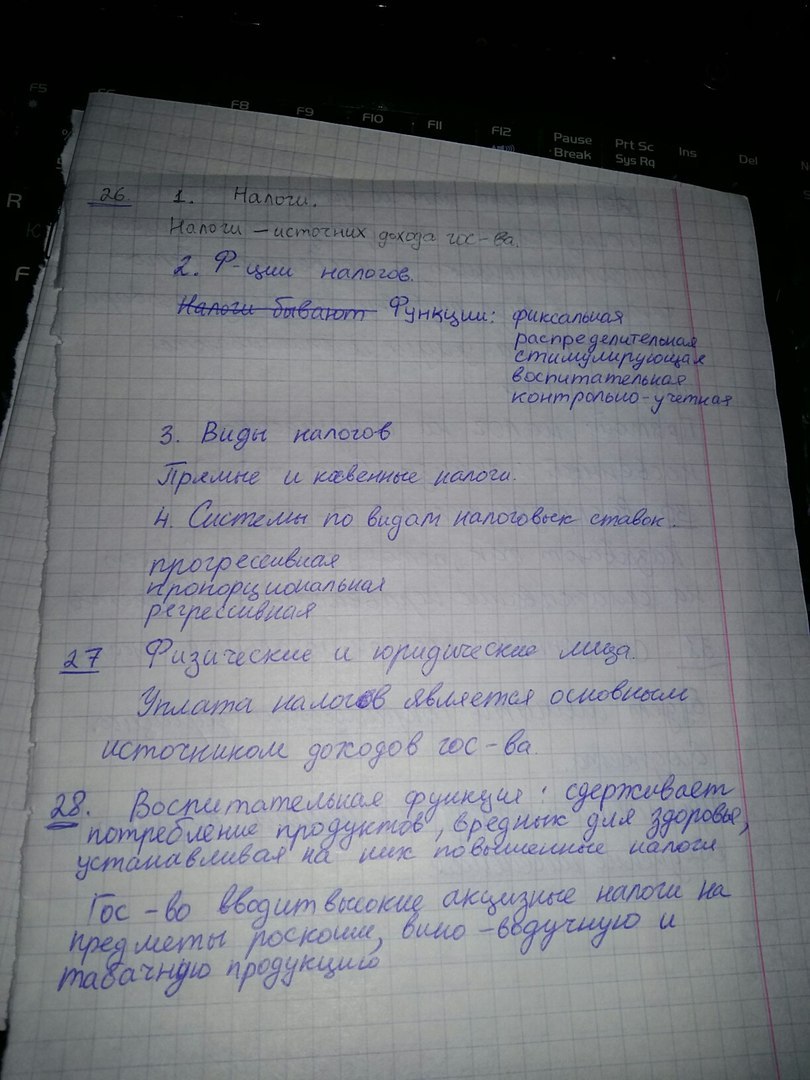 F5
F8
F9
F10
F11
F12
Pause
Break
Prt Sc
Sys Rq
Ins
Del
R
K
F
26. 1. Налоги.
Налоги – источних дохода гос-ва.
2. Ф-ции налогов.
Налоги бывают Функции: фиксальная
распределительная
стимулирующая
воспитательная
контрольно-учетная
3. Виды налогов
Прямые и косвенные налоги.
4. Системы по видам налоговых ставок.
прогрессивная
пропорциональная
регрессивная
27 Физические и юридические лица.
Уплата налогов является основным
источником доходов гос-ва.
28. Воспитательная функция: сдерживает
потребление продуктов, вредных для здоровья,
устанавливая на них повышенные налоги
Гос-во вводит высокие акцизные налоги на
предметы роскоши, вино-водучную и
табачную продукцию